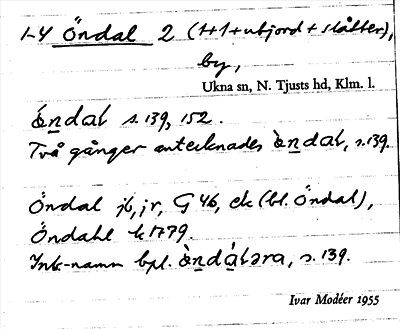 1-4 Öndal 2 (1+1+utjord+slåtter),
by,
Ukna sn, N. Tjusts hd, Klm. l.
öndal s. 139, 152.
Två gånger antecknades öndal, s. 139.
Öndal jb, jr, G 46, ek (bl. Öndal),
Öndahl k 1779.
Ink-namn bpl. òndálǝra, s. 139.
Ivar Modéer 1955